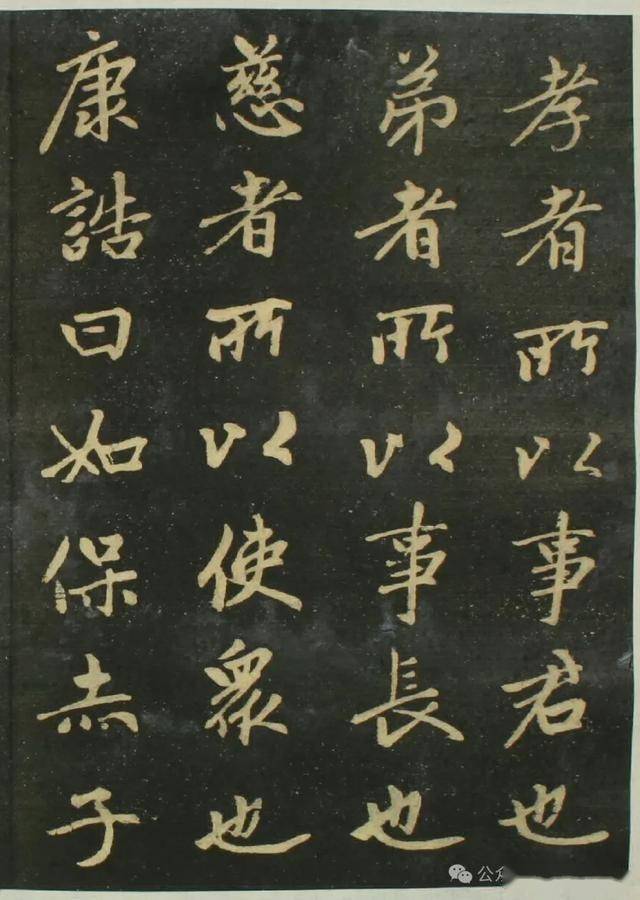 孝者所以事君也
弟者所以事長也
慈者所以使衆也
康誥曰如保赤子
公众